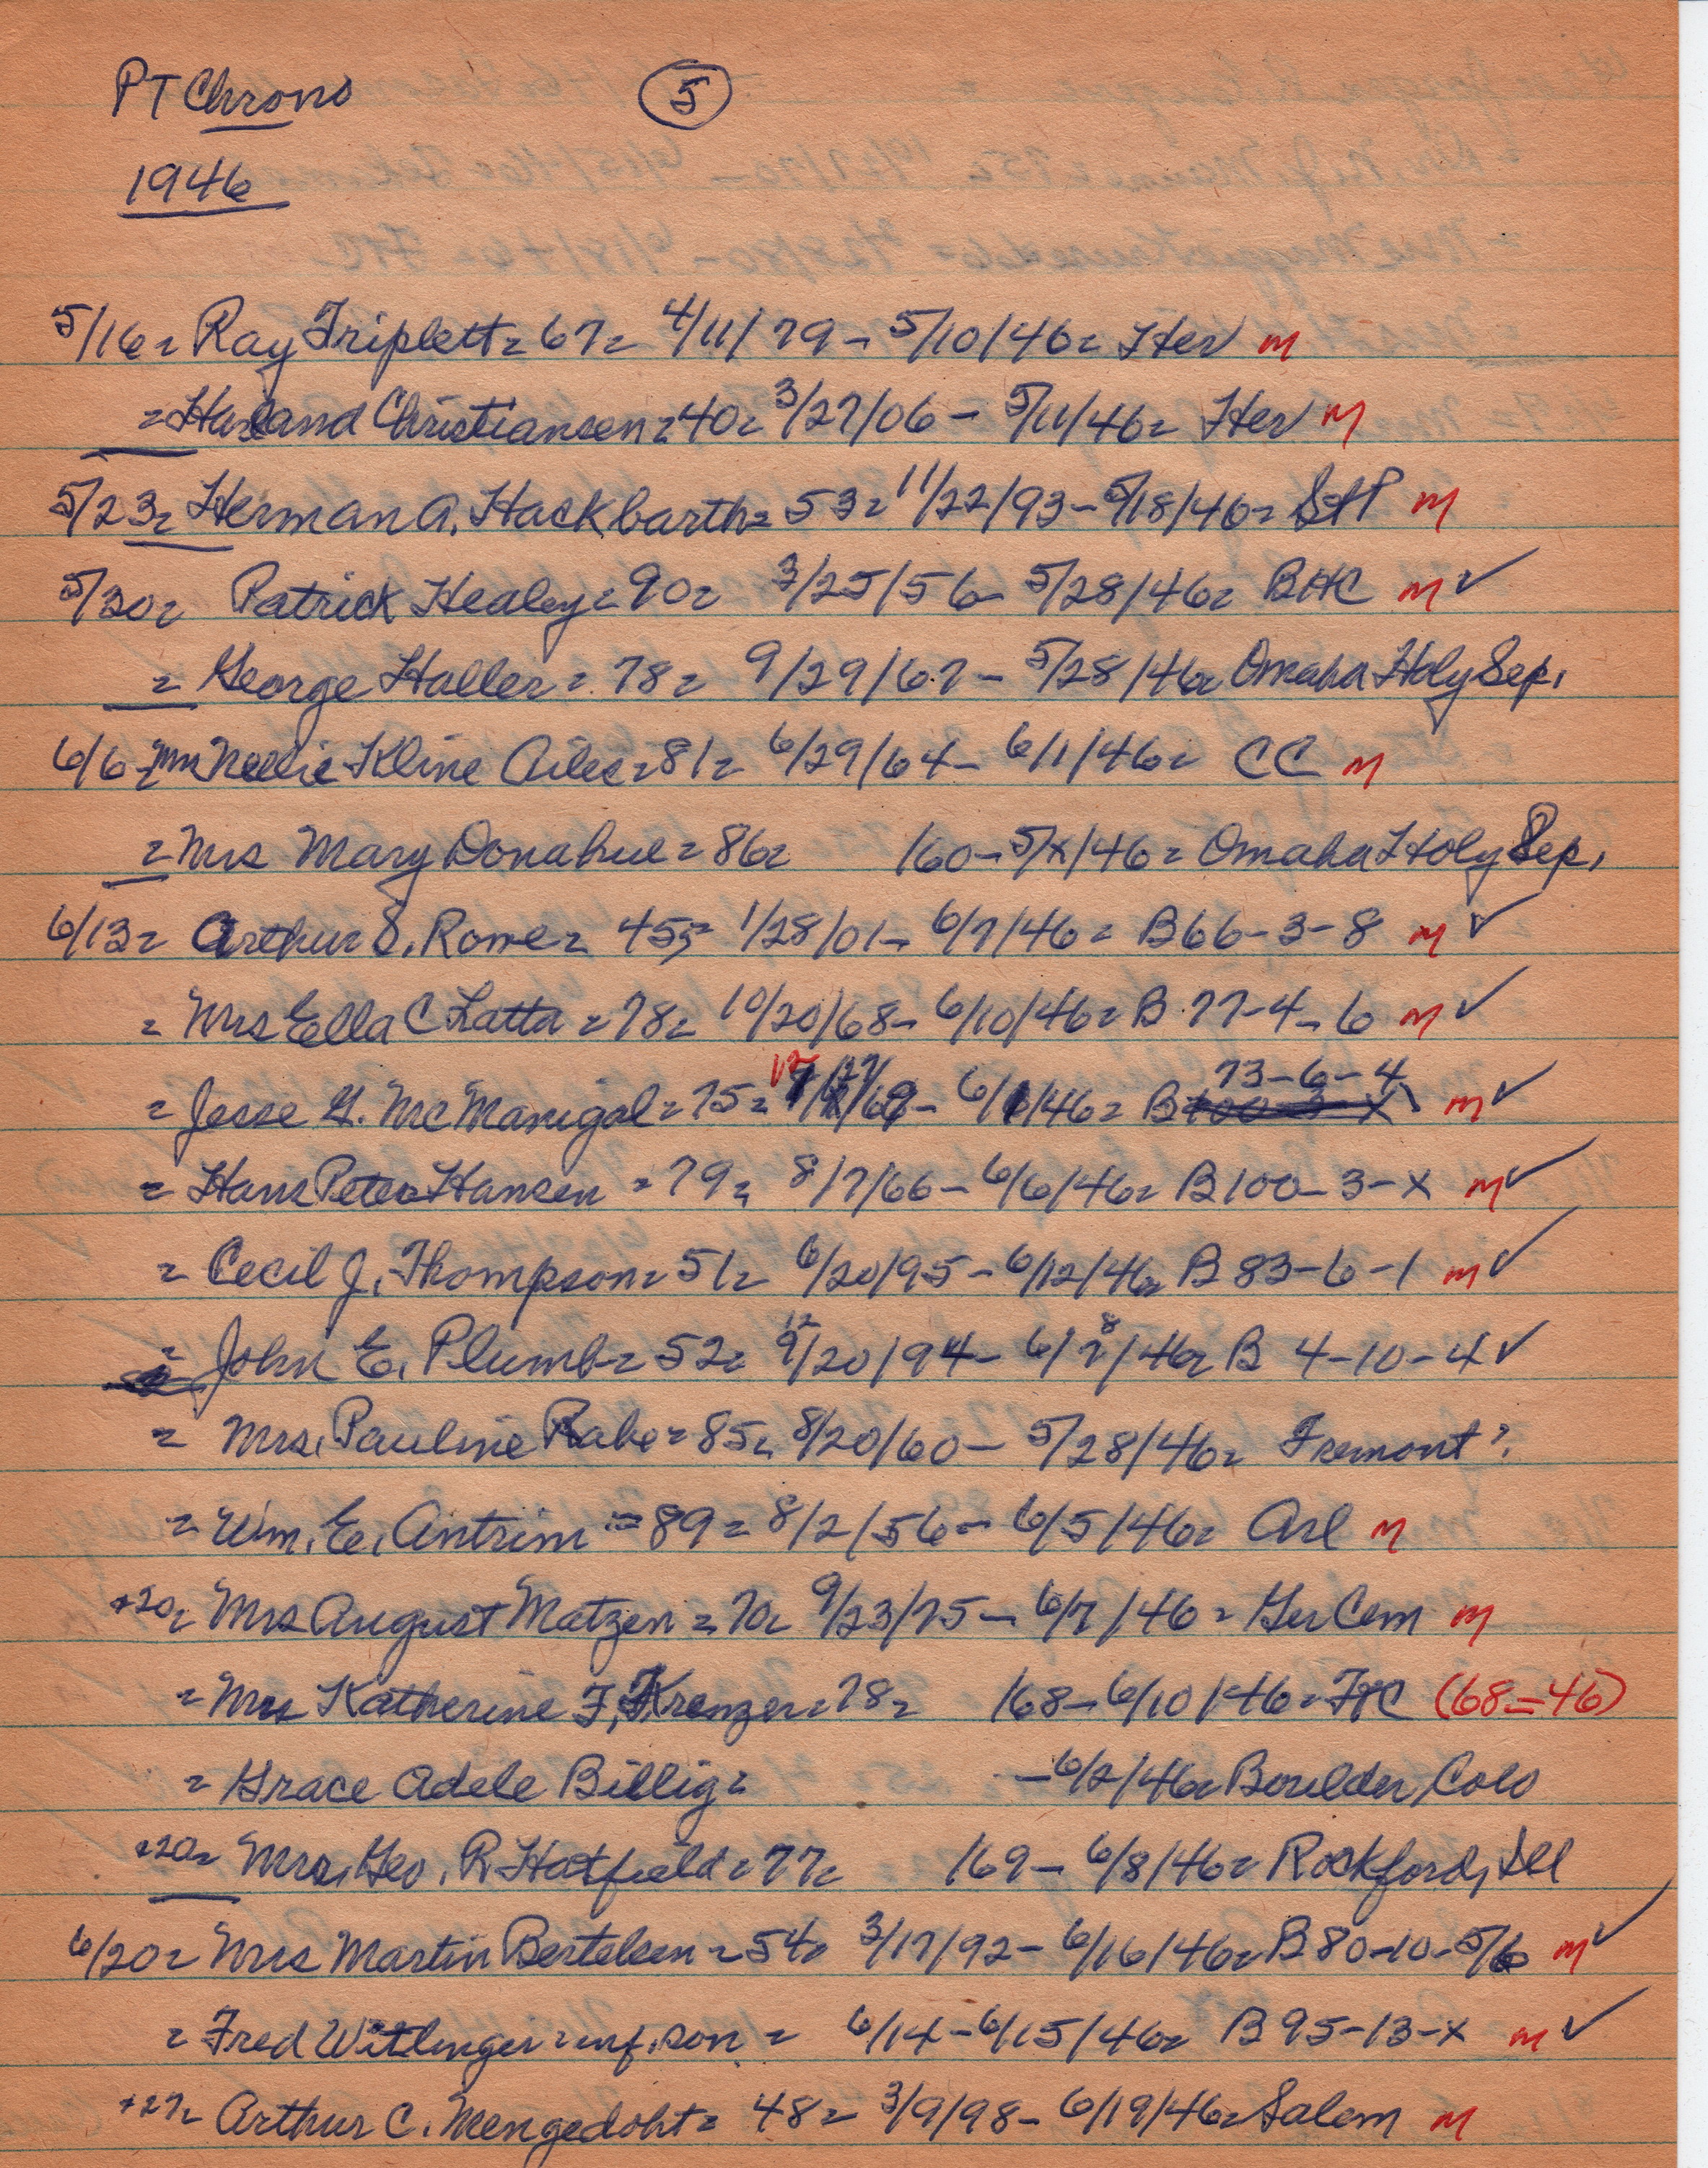 PT Chrono 5
1946
5/16= Ray Triplett= 67= 4/11/79 - 5/10/46= Her M
= Harland Christiansen= 40= 3/27/06 - 5/11/46= Her M
5/23= Herman A. Hackbarth= 53= 11/22/93 - 5/18/46= M
5/30= Patrick Healey= 90= 3/25/56 - 5/28/46= BHC M ✓
= George Haller= 78= 9/29/67 - 5/28/46= Omaha Holy Sep.
6/6 = Mrs Nellie Kline = 81= 6/29/64 - 6/1/46= CC M
= Mrs Mary Donahue= 86= 160 - 5/x/46= Omaha Holy Sep.
6/13= Arthur S. Rowe= 45= 1/28/01 - 6/7/46= B66-3-8 M ✓
= Mrs Ella C Latta= 78= 10/20/68 - 6/10/46= B 77-4-6 M ✓
= Jesse G. McManigal= 75= /69 - 6/ /46= B 73-6-4 M ✓
= Hans Peter Hansen= 79= 8/7/66 - 6/6/46= B100-3-x M ✓
= Cecil J. Thompson= 51= 6/20/95 - 6/12/46= B 83-6-1 M ✓
= John E. Plumb= 52= 9/20/94 - 6/ /46= B 4-10-4 ✓
= Mrs. Pauline Rabe= 85= 8/20/60 - 5/28/46= Fremont?
= Wm. E. Antrim= 89= 8/2/56 - 6/5/46= Arl M
+20= Mrs August Matzen= 70= 9/23/75 - 6/7/46= Ger Cem M
= Mrs Katherine F. Krenzer= 78= 168 - 6/10/46= FTC (68=46)
= Grace Adele Billig= - 6/2/46= Boulder, Colo
+20= Mrs. Geo. R. Hatfield= 77= 169 - 6/8/46= Rockford, Ill
6/20= Mrs Martin Bertelsen= 54= 3/17/92 - 6/16/46= B80-10-5/6 M ✓
= Fred Witlinger= inf. son = 6/14 - 6/15/46= B95-13-x M ✓
+27= Arthur C. Mengedoht= 48= 3/9/98 - 6/19/46= Salem M